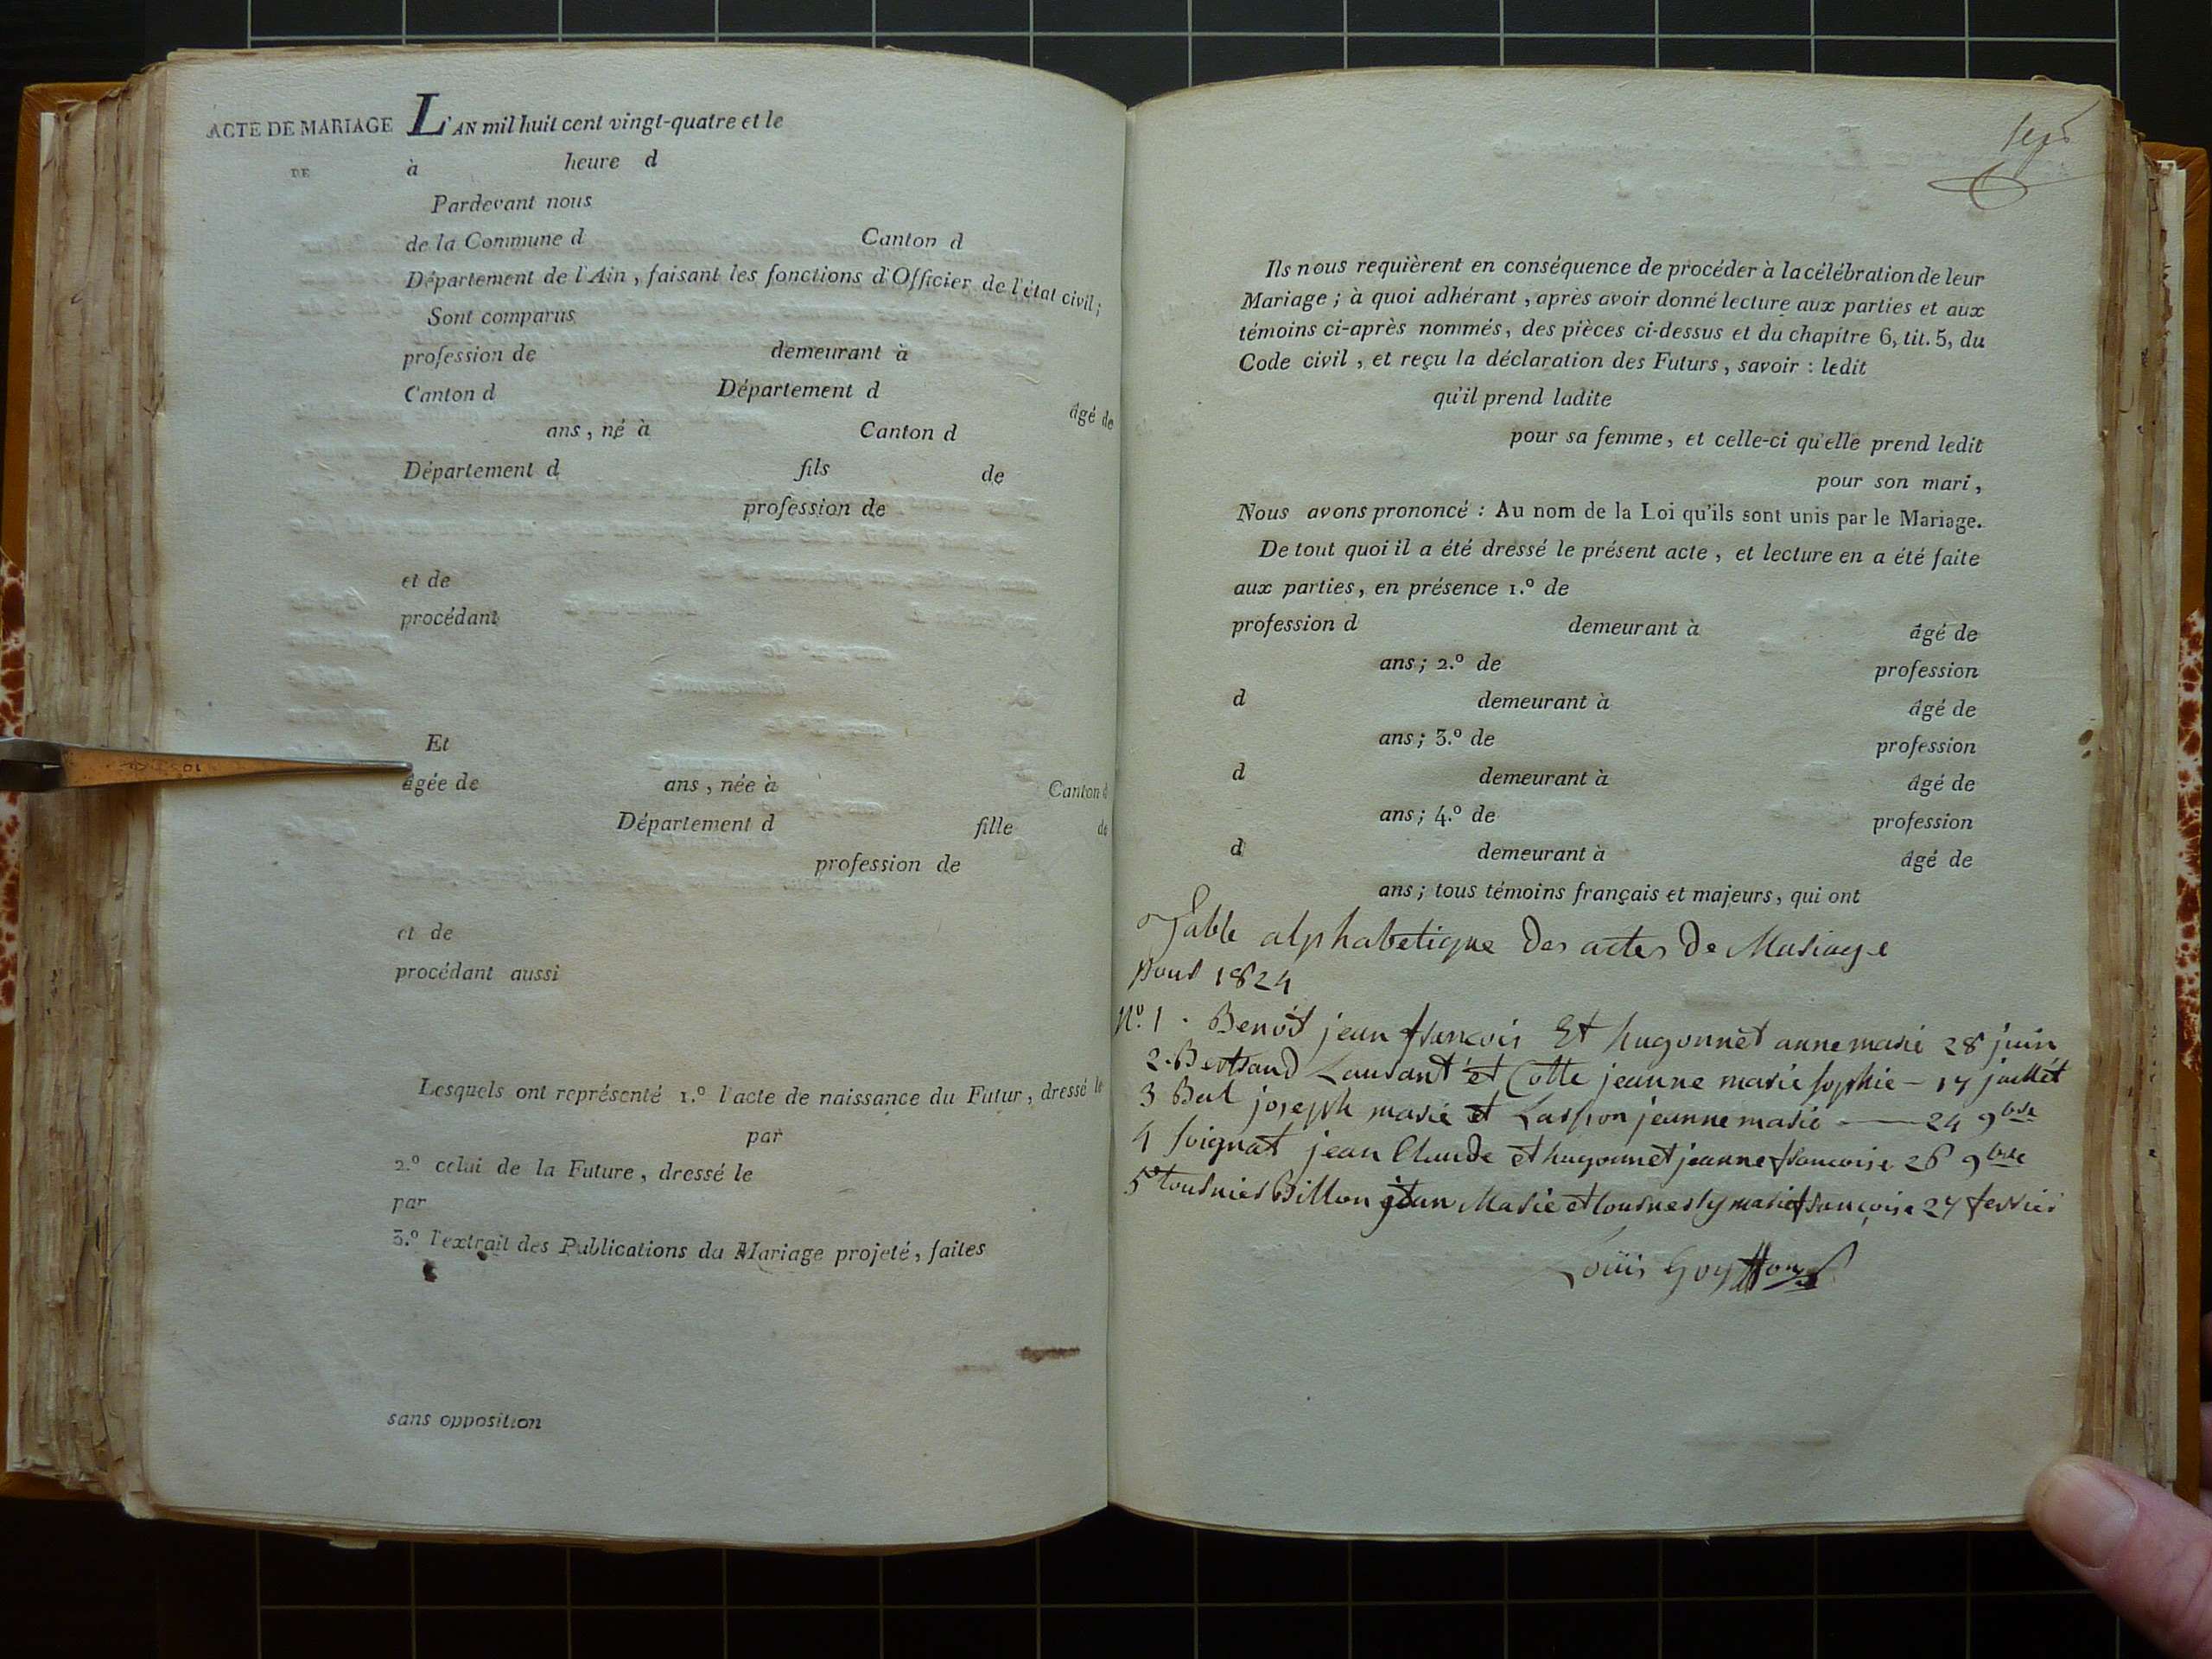 ACTE DE MARIAGE
DE
L'AN mil huit cent vingt-quatre et le
à heure d
Pardevant nous
de la Commune d Canton d
Département de l'Ain, faisant les fonctions d'Officier de l'état civil;
Sont comparus
profession de demeurant à
Canton d Département d
âgé de
ans, né à Canton d
Département d fils de
profession de
et de
procédant
Et
âgée de ans, née à Canton d
Département d fille de
profession de
et de
procédant aussi
Lesquels ont représenté 1.º l'acte de naissance du Futur, dressé le
par
2.º celui de la Future, dressé le
par
3.º l'extrait des Publications du Mariage projeté, faites
sans opposition
Ils nous requièrent en conséquence de procéder à la célébration de leur
Mariage; à quoi adhérant, après avoir donné lecture aux parties et aux
témoins ci-après nommés, des pièces ci-dessus et du chapitre 6, tit. 5, du
Code civil, et reçu la déclaration des Futurs, savoir : ledit
qu'il prend ladite
pour sa femme, et celle-ci qu'elle prend ledit
pour son mari,
Nous avons prononcé : Au nom de la Loi qu'ils sont unis par le Mariage.
De tout quoi il a été dressé le présent acte, et lecture en a été faite
aux parties, en présence 1.º de
profession d demeurant à âgé de
ans; 2.º de profession
d demeurant à âgé de
ans; 3.º de profession
d demeurant à âgé de
ans; 4.º de profession
d demeurant à âgé de
ans; tous témoins français et majeurs, qui ont
Table alphabetique des actes de Mariage
pour 1824
Nº. 1 . Benoit jean francois Et hugonnet anne marie 28 juin
2. Bertrand Laurant et Cotte jeanne marie sophie - 17 juillet
3 Bert joseph marie et jeanne marie — 24 9bre
4 soignat jean Claude et hugonnet jeanne francoise 26 9bre
5º tournier Billon jean Marie et marie françoise 27 fevrier
Louis